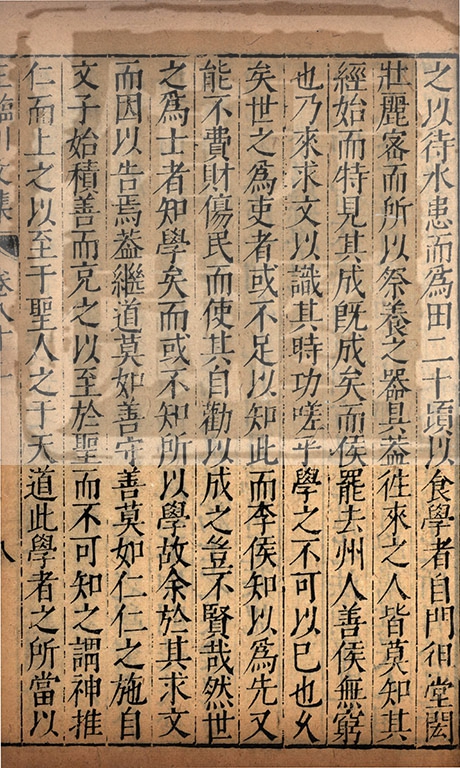 之以待水患而為田二十頃以食學者自門徂堂閎
壯麗宻而所以祭養之器具葢徃來之人皆莫知其
經始而特見其成旣成矣而侯罷去州人善侯無窮
也乃來求文以識其時功嗟乎學之不可以已也乆
矣世之為吏者或不足以知此而李侯知以為先又
能不費財傷民而使其自勸以成之豈不賢哉然世
之為士者知學矣而或不知所以學故余於其求文
而因以告焉葢繼道莫如善守善莫如仁仁之施自
父子始積善而充之以至於聖而不可知之謂神推
仁而上之以至于聖人之于天道此學者之所當以
王臨川文集 卷八十二 八